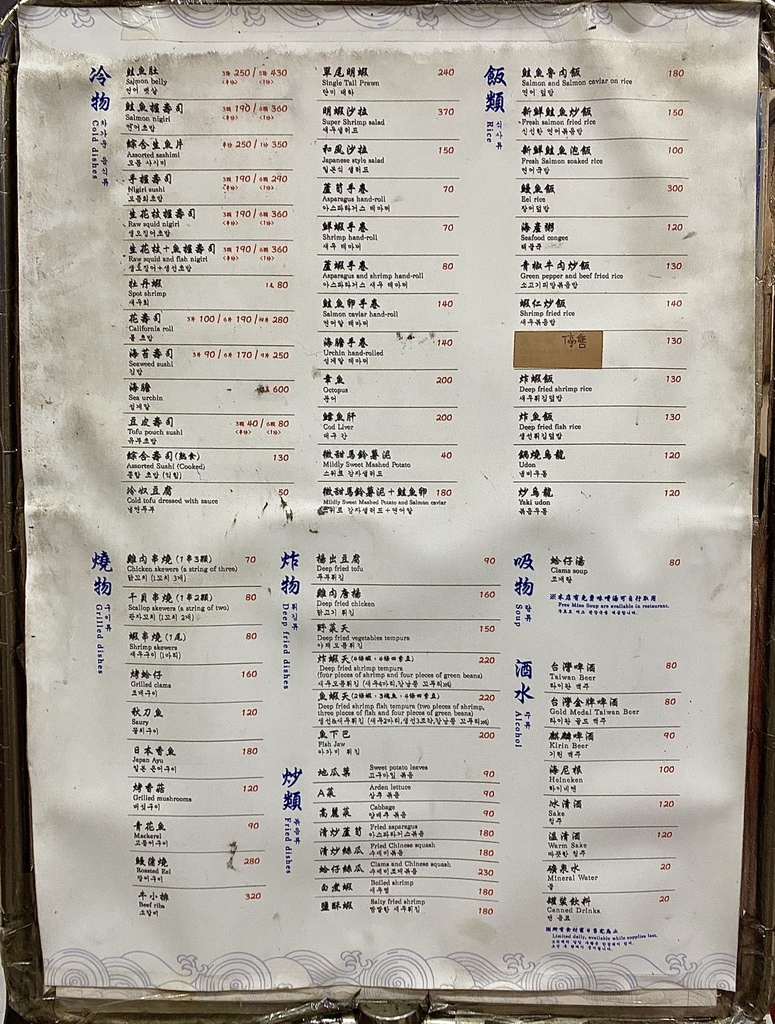 冷物 차가운 음식류 Cold dishes
鮭魚肚 3片 250 / 5片 430
Salmon belly
연어 뱃살
鮭魚握壽司 3顆 190 / 6顆 360
Salmon nigiri
연어초밥
綜合生魚片 250 / 1份 350
Assorted sashimi
모듬 사시미
手握壽司 3顆 190 / 6顆 290
Nigiri sushi
모듬회초밥
生花枝握壽司 3顆 190 / 6顆 360
Raw squid nigiri
생오징어초밥
生花枝+魚握壽司 3顆 190 / 6顆 360
Raw squid and fish nigiri
생오징어+생선초밥
牡丹蝦 1尾 80
Spot shrimp
새우회
花壽司 3片 100 / 6片 190 / 10片 280
California roll
롤 초밥
海苔壽司 3片 90 / 6片 170 / 9片 250
Seaweed sushi
김밥
海膽 600
Sea urchin
성게알
豆皮壽司 3顆 40 / 6顆 80
Tofu pouch sushi
유부초밥
綜合壽司(熟食) 130
Assorted Sushi (Cooked)
종합 초밥 (익힘)
冷奴豆腐 50
Cold tofu dressed with sauce
냉면두부
單尾明蝦 240
Single Tall Prawn
단미 대하
明蝦沙拉 370
Super Shrimp salad
새우샐러드
和風沙拉 150
Japanese style salad
일본식 샐러드
蘆筍手卷 70
Asparagus hand-roll
아스파라거스 데마끼
鮮蝦手卷 70
Shrimp hand-roll
새우 데마끼
蘆蝦手卷 80
Asparagus and shrimp hand-roll
아스파라거스 새우 데마끼
鮭魚卵手卷 140
Salmon caviar hand-roll
연어알 데마끼
海膽手卷 140
Urchin hand-rolled
성게알 데마끼
章魚 200
Octopus
문어
鱈魚肝 200
Cod Liver
대구 간
微甜馬鈴薯泥 40
Mildly Sweet Mashed Potato
스위트 감자샐러드
微甜馬鈴薯泥+鮭魚卵 180
Mildly Sweet Mashed Potato and Salmon caviar
스위트 감자샐러드+연어알
飯類 식사류 Rice
鮭魚魯肉飯 180
Salmon and Salmon caviar on rice
연어 덮밥
新鮮鮭魚炒飯 150
Fresh salmon fried rice
신선한 연어볶음밥
新鮮鮭魚泡飯 100
Fresh Salmon soaked rice
연어국밥
鰻魚飯 300
Eel rice
장어덮밥
海產粥 120
Seafood congee
해물죽
青椒牛肉炒飯 130
Green pepper and beef fried rice
소고기피망볶음밥
蝦仁炒飯 140
Shrimp fried rice
새우볶음밥
停售 130
炸蝦飯 130
Deep fried shrimp rice
새우튀김덮밥
炸魚飯 130
Deep fried fish rice
생선튀김덮밥
鍋燒烏龍 120
Udon
냄비우동
炒烏龍 120
Yaki udon
볶음우동
燒物 구이류 Grilled dishes
雞肉串燒 (1串3顆) 70
Chicken skewers (a string of three)
닭꼬치 (1꼬치 3개)
干貝串燒 (1串2顆) 80
Scallop skewers (a string of two)
관자꼬치 (1꼬치 2개)
蝦串燒 (1尾) 80
Shrimp skewers
새우구이 (1마리)
烤蛤仔 160
Grilled clams
조개구이
秋刀魚 120
Saury
꽁치구이
日本香魚 180
Japan Ayu
일본 은어구이
烤香菇 120
Grilled mushrooms
버섯구이
青花魚 90
Mackerel
고등어구이
鰻蒲燒 280
Roasted Eel
장어구이
牛小排 320
Beef ribs
소갈비
炸物 튀김류 Deep fried dishes
揚出豆腐 90
Deep fried tofu
두부튀김
雞肉唐揚 160
Deep fried chicken
닭고기 튀김
野菜天 150
Deep fried vegetables tempura
야채모듬튀김
炸蝦天(4條蝦、4條四季豆) 220
Deep fried shrimp tempura
(four pieces of shrimp and four pieces of green beans)
새우모듬튀김 (새우4마리,강낭콩 꼬투리x4)
魚蝦天(2條蝦、3塊魚、4條四季豆) 220
Deep fried shrimp fish tempura (two pieces of shrimp,
three pieces of fish and four pieces of green beans)
생선&새우튀김 (새우2마리,생선3조각,강낭콩 꼬투리x4)
魚下巴 200
Fish Jaw
아가미 튀김
炒類 볶음류 Fried dishes
地瓜葉 Sweet potato leaves 고구마잎 볶음 90
A菜 Arden lettuce 상추 볶음 90
高麗菜 Cabbage 양배추 볶음 90
清炒蘆筍 Fried asparagus 아스파라거스볶음 180
清炒絲瓜 Fried Chinese squash 수세미볶음 180
蛤仔絲瓜 Clams and Chinese squash 수세미조개볶음 230
白煮蝦 Boiled shrimp 새우찜 180
鹽酥蝦 Salty fried shrimp 짭짤한 새우튀김 180
吸物 탕류 Soup
蛤仔湯 80
Clams soup
조개탕
※本店有免費味噌湯可自行取用
Free Miso Soup are available in restaurant.
酒水 주류 Alcohol
台灣啤酒 80
Taiwan Beer
타이완 맥주
台灣金牌啤酒 80
Gold Medal Taiwan Beer
타이완 골드 맥주
麒麟啤酒 90
Kirin Beer
기린 맥주
海尼根 100
Heineken
하이네켄
冰清酒 120
Sake
청주
溫清酒 120
Warm Sake
따뜻한 청주
礦泉水 20
Mineral Water
물
罐裝飲料 20
Canned Drinks
캔 음료
※所有食材當日售完為止
Limited daily, available while supplies last.